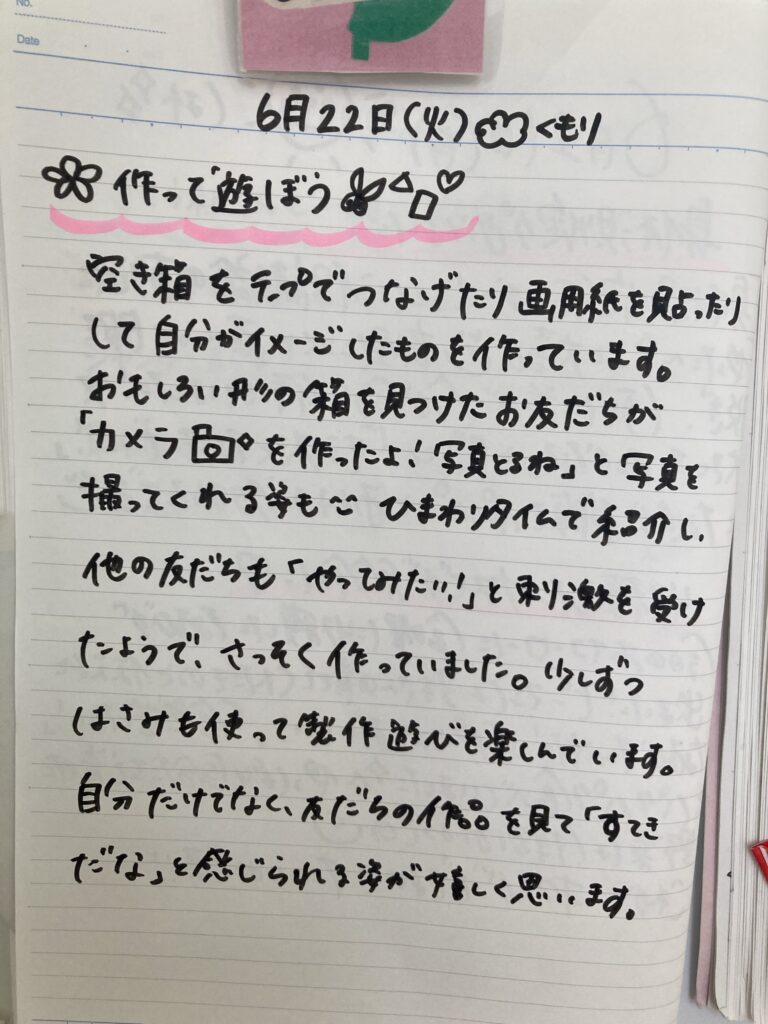 No.
Date
6月22日(火) くもり
作って遊ぼう
空き箱をテープでつなげたり画用紙を貼ったり
して自分がイメージしたものを作っています。
おもしろい形の箱を見つけたお友だちが
「カメラ を作ったよ!写真とるね」と写真を
撮ってくれる姿も ひまわりタイムで紹介し、
他の友だちも「やってみたい!!」と刺激を受け
たようで、さっそく作っていました。少しずつ
はさみも使って製作遊びを楽しんでいます。
自分だけでなく、友だちの作品を見て「すてき
だな」と感じられる姿が嬉しく思います。